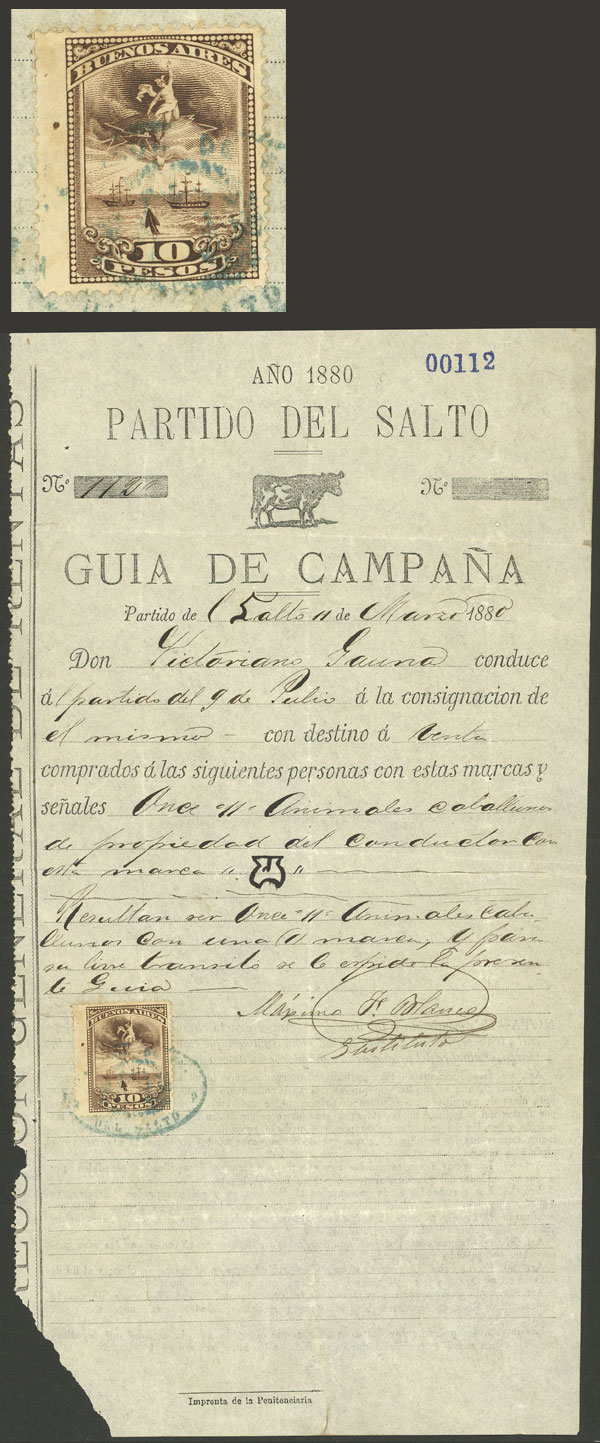 BUENOS AIRES
10
PESOS
00112
AÑO 1880
PARTIDO DEL SALTO
Nº Nº
GUIA DE CAMPAÑA
Partido de l Salto 11 de Marzo 1880
Don Victoriano Gauna conduce
á l partido del 9 de Julio á la consignacion de
el mismo - con destino á Venta
comprados á las siguientes personas con estas marcas y
señales Once "11" Animales caballunos
de propiedad del conductor con
esta marca " "
Resultan ser Once "11" Animales caba-
llunos con una (1) marca, y para
su libre transito se le espide la presen-
te Guia
Máximo F. Blanco
Sustituto
BUENOS AIRES
10
PESOS
DEL SALTO
CCION GENERAL DE RENTAS
Imprenta de la Penitenciaria